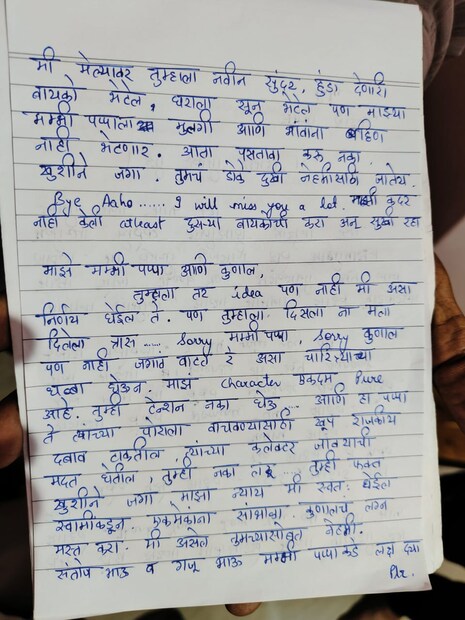 मी मेल्यावर तुम्हाला नवीन सुंदर, हुंडा देणारी
बायको भेटेल, घराला सून भेटेल पण माझ्या
मम्मी पप्पाला मुलगी आणि भावांना बहिण
नाही भेटणार. आता पस्तावा करू नका.
खुशीने जगा. तुमचं डोक दुखी नेहमीसाठी जातेय.
Bye Aaho...... I will miss you a lot. माझी कदर
नाही केली atleast दुसऱ्या बायकोची करा अन् सुखी रहा
माझे मम्मी पप्पा आणि कुणाल,
तुम्हाला तर idea पण नाही मी असा
निर्णय घेईल ते. पण तुम्हाला दिसला ना मला
दिलेला त्रास ..... Sorry मम्मी पप्पा, Sorry कुणाल
पण नाही जगावं वाटत रे असा चारित्र्याच्या
धब्बा घेऊन. माझं character एकदम Pure
आहे. तुम्ही टेन्शन नका घेऊ.. आणि हा पप्पा
ते त्याच्या पोराला वाचवण्यासाठी खूप राजकीय
दबाव टाकतील, त्यांच्या कलेक्टर जावयाची
मदत घेतील, तुम्ही नका .... तुम्ही फक्त
खुशीने जगा माझा न्याय मी स्वतः घेईल
स्वामींकडून. एकमेकांना सांभाळा. कुणालच लग्न
मस्त करा. मी असेल तुमच्यासोबत नेहमी.
संतोष भाऊ व गजू भाऊ मम्मी पप्पाकडे लक्ष द्या
Plz.